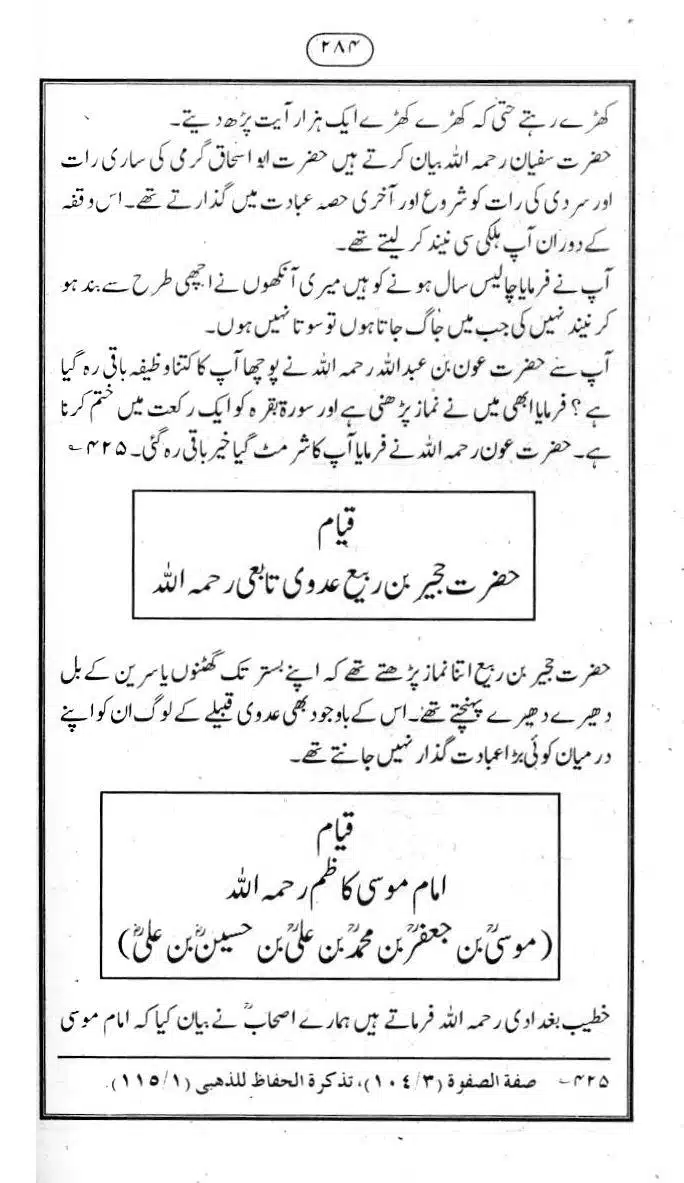 ۲۸۴
کھڑے رہتے حتیٰ کہ کھڑے کھڑے ایک ہزار آیت پڑھ دیتے۔
حضرت سفیان رحمہ اللہ بیان کرتے ہیں حضرت ابواسحاق گرمی کی ساری رات
اور سردی کی رات کو شروع اور آخری حصہ عبادت میں گذارتے تھے۔ اس وقفہ
کے دوران آپ ہلکی سی نیند کر لیتے تھے۔
آپ نے فرمایا چالیس سال ہونے کو ہیں میری آنکھوں نے اچھی طرح سے بند ہو
کر نیند نہیں کی جب میں جاگ جاتا ہوں تو سوتا نہیں ہوں۔
آپ سے حضرت عون بن عبداللہ رحمہ اللہ نے پوچھا آپ کا کتنا وظیفہ باقی رہ گیا
ہے؟ فرمایا ابھی میں نے نماز پڑھنی ہے اور سورۃ بقرہ کو ایک رکعت میں ختم کرنا
ہے۔ حضرت عون رحمہ اللہ نے فرمایا آپ کا شر مٹ گیا خیر باقی رہ گئی۔ ۴۲۵؎
قیام
حضرت حجیر بن ربیع عدوی تابعی رحمہ اللہ
حضرت حجیر بن ربیع اتنا نماز پڑھتے تھے کہ اپنے بستر تک گھٹنوں یا سرین کے بل
دھیرے دھیرے پہنچتے تھے۔ اس کے باوجود بھی عدوی قبیلے کے لوگ ان کو اپنے
درمیان کوئی بڑا عبادت گذار نہیں جانتے تھے۔
قیام
امام موسی کاظم رحمہ اللہ
(موسیٰؒ بن جعفرؒ بن محمدؒ بن علیؒ بن حسینؓ بن علیؓ)
خطیب بغدادی رحمہ اللہ فرماتے ہیں ہمارے اصحابؒ نے بیان کیا کہ امام موسی
۴۲۵؎ صفة الصفوة (۱۰٤/۳)، تذكرة الحفاظ للذهبی (۱۱۵/۱).